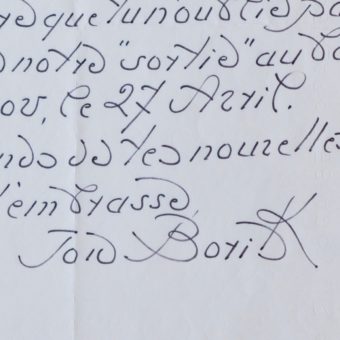 que tu n'oublie pa
notre "sortie" au
le 27 Avril.
de tes nouvelles
t'embrasse,
Ton Boris K